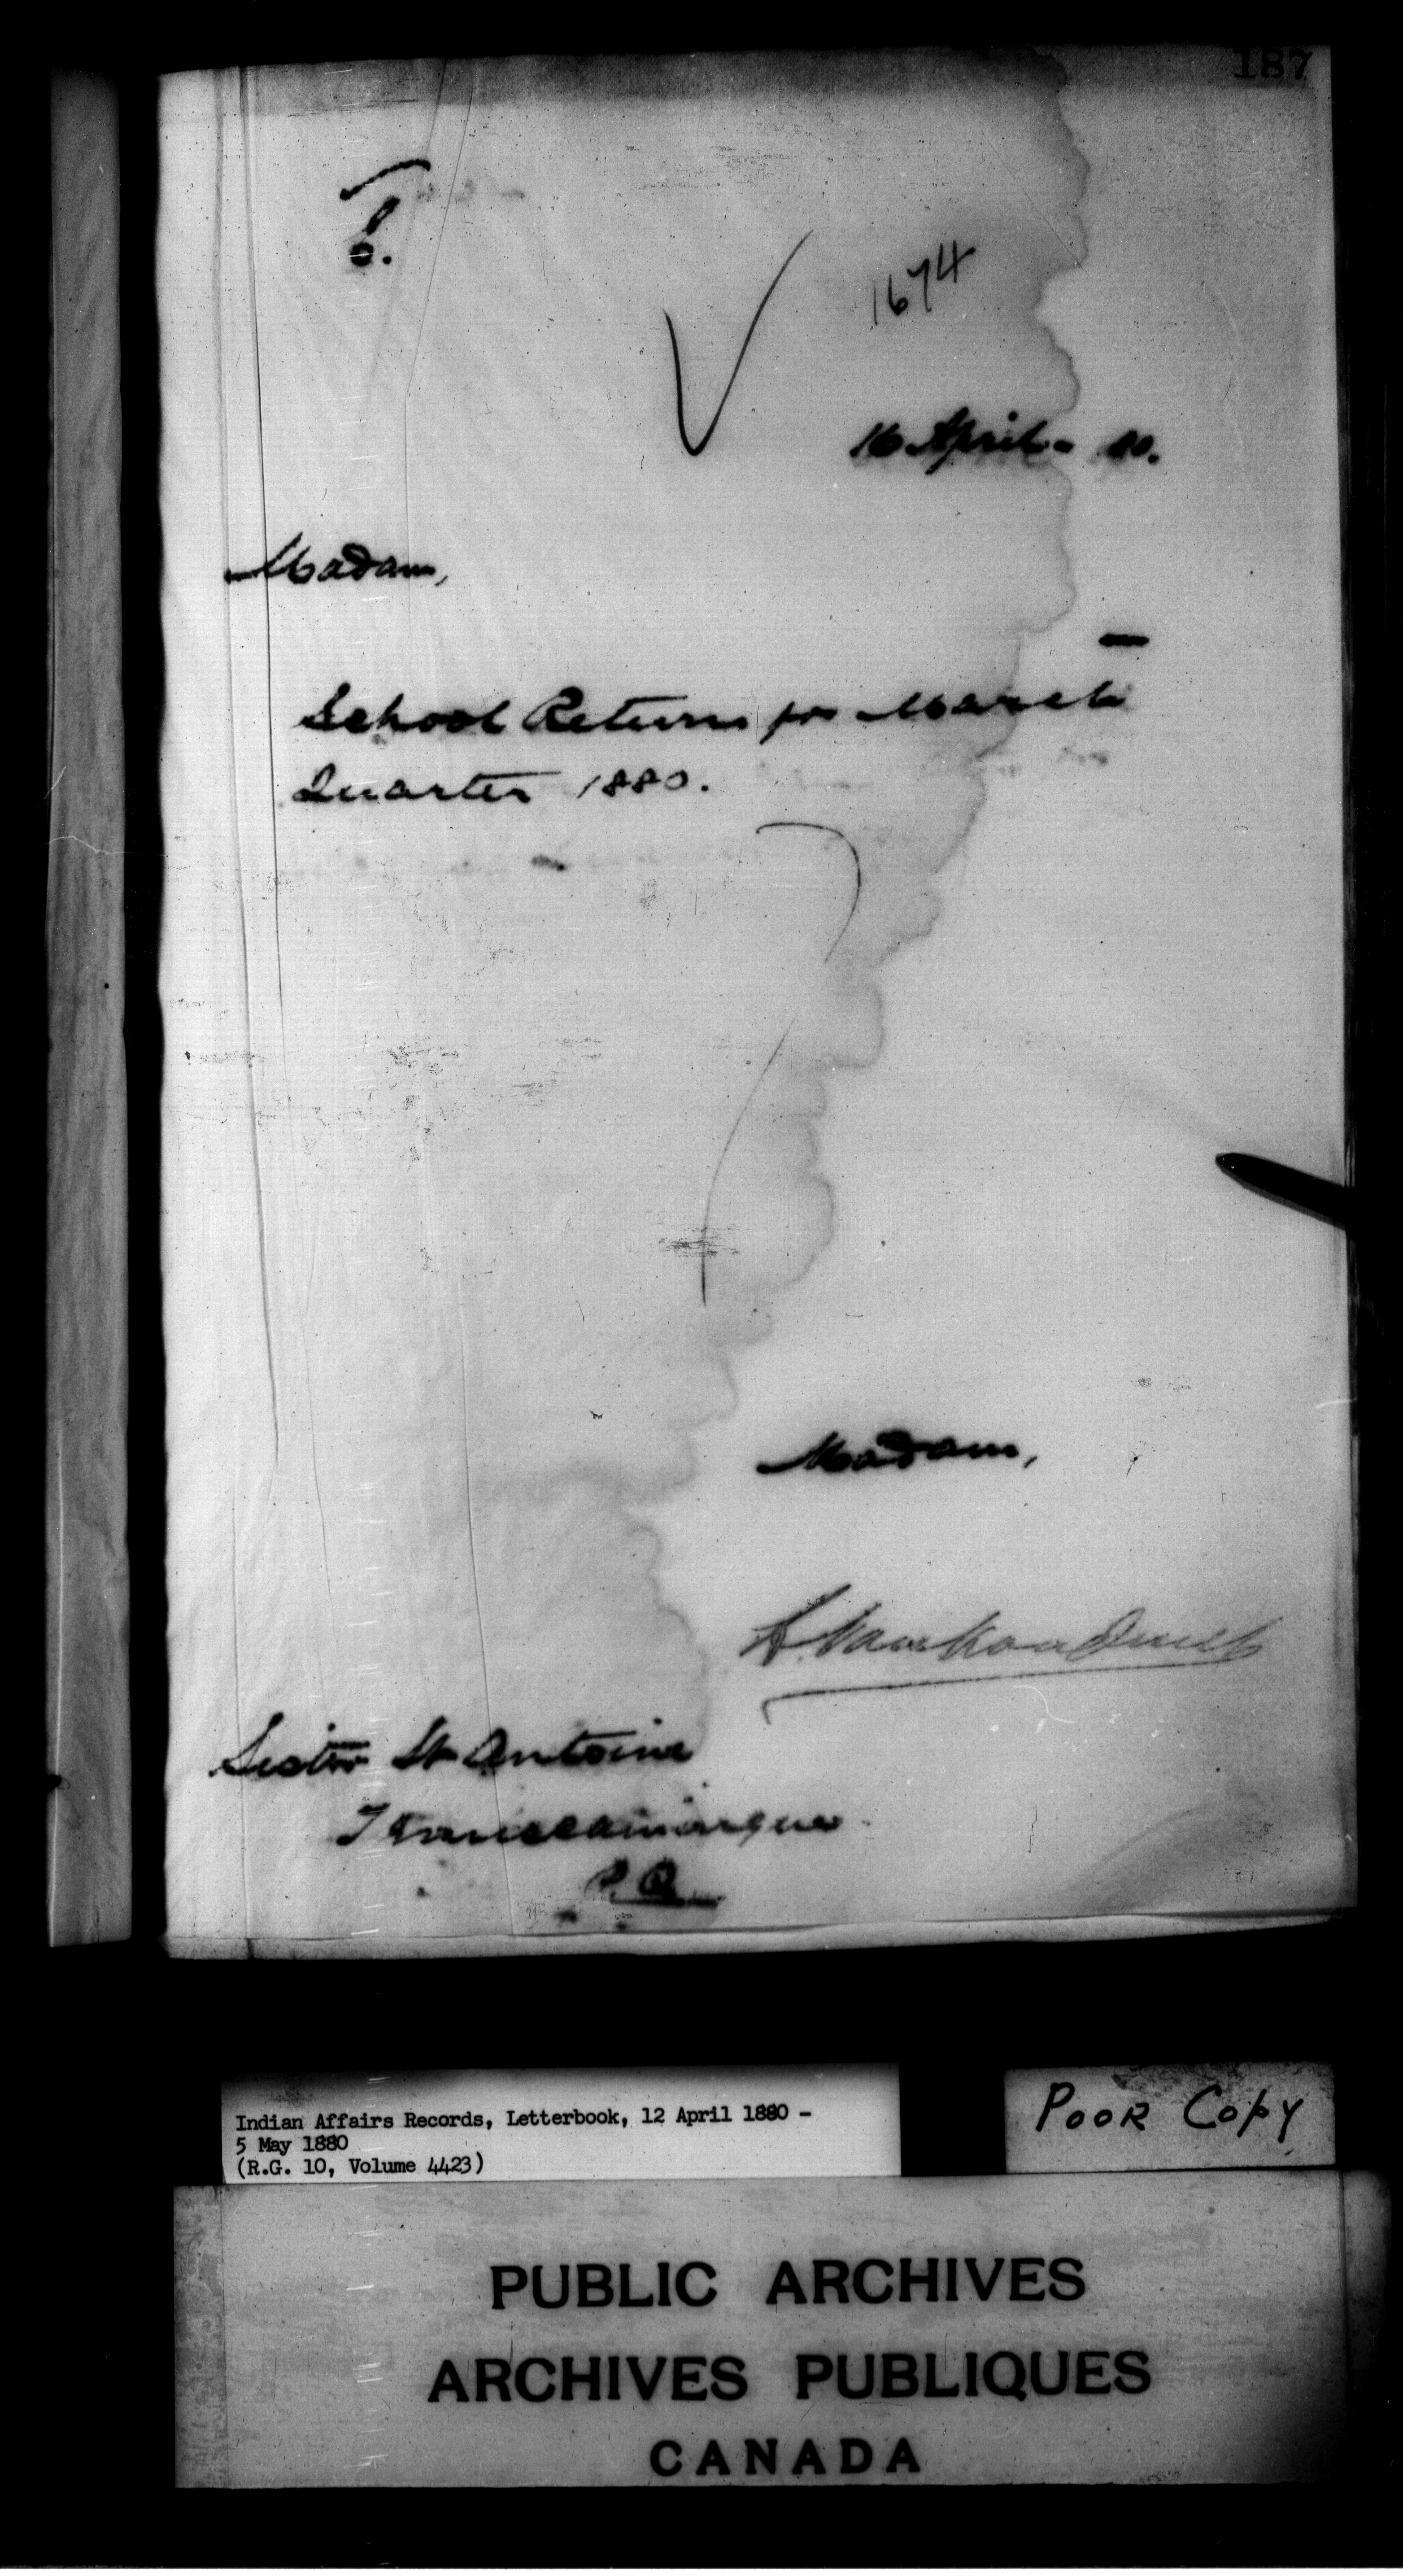 187
1674
16 April - 80.
Madam,
School Returns for March
Quarter 1880.
Madam,
L. Vankoughnet
Sister St Antoine
P.Q.
Indian Affairs Records, Letterbook, 12 April 1880 -
5 May 1880
(R.G. 10, Volume 4423)
POOR COPY
PUBLIC ARCHIVES
ARCHIVES PUBLIQUES
CANADA